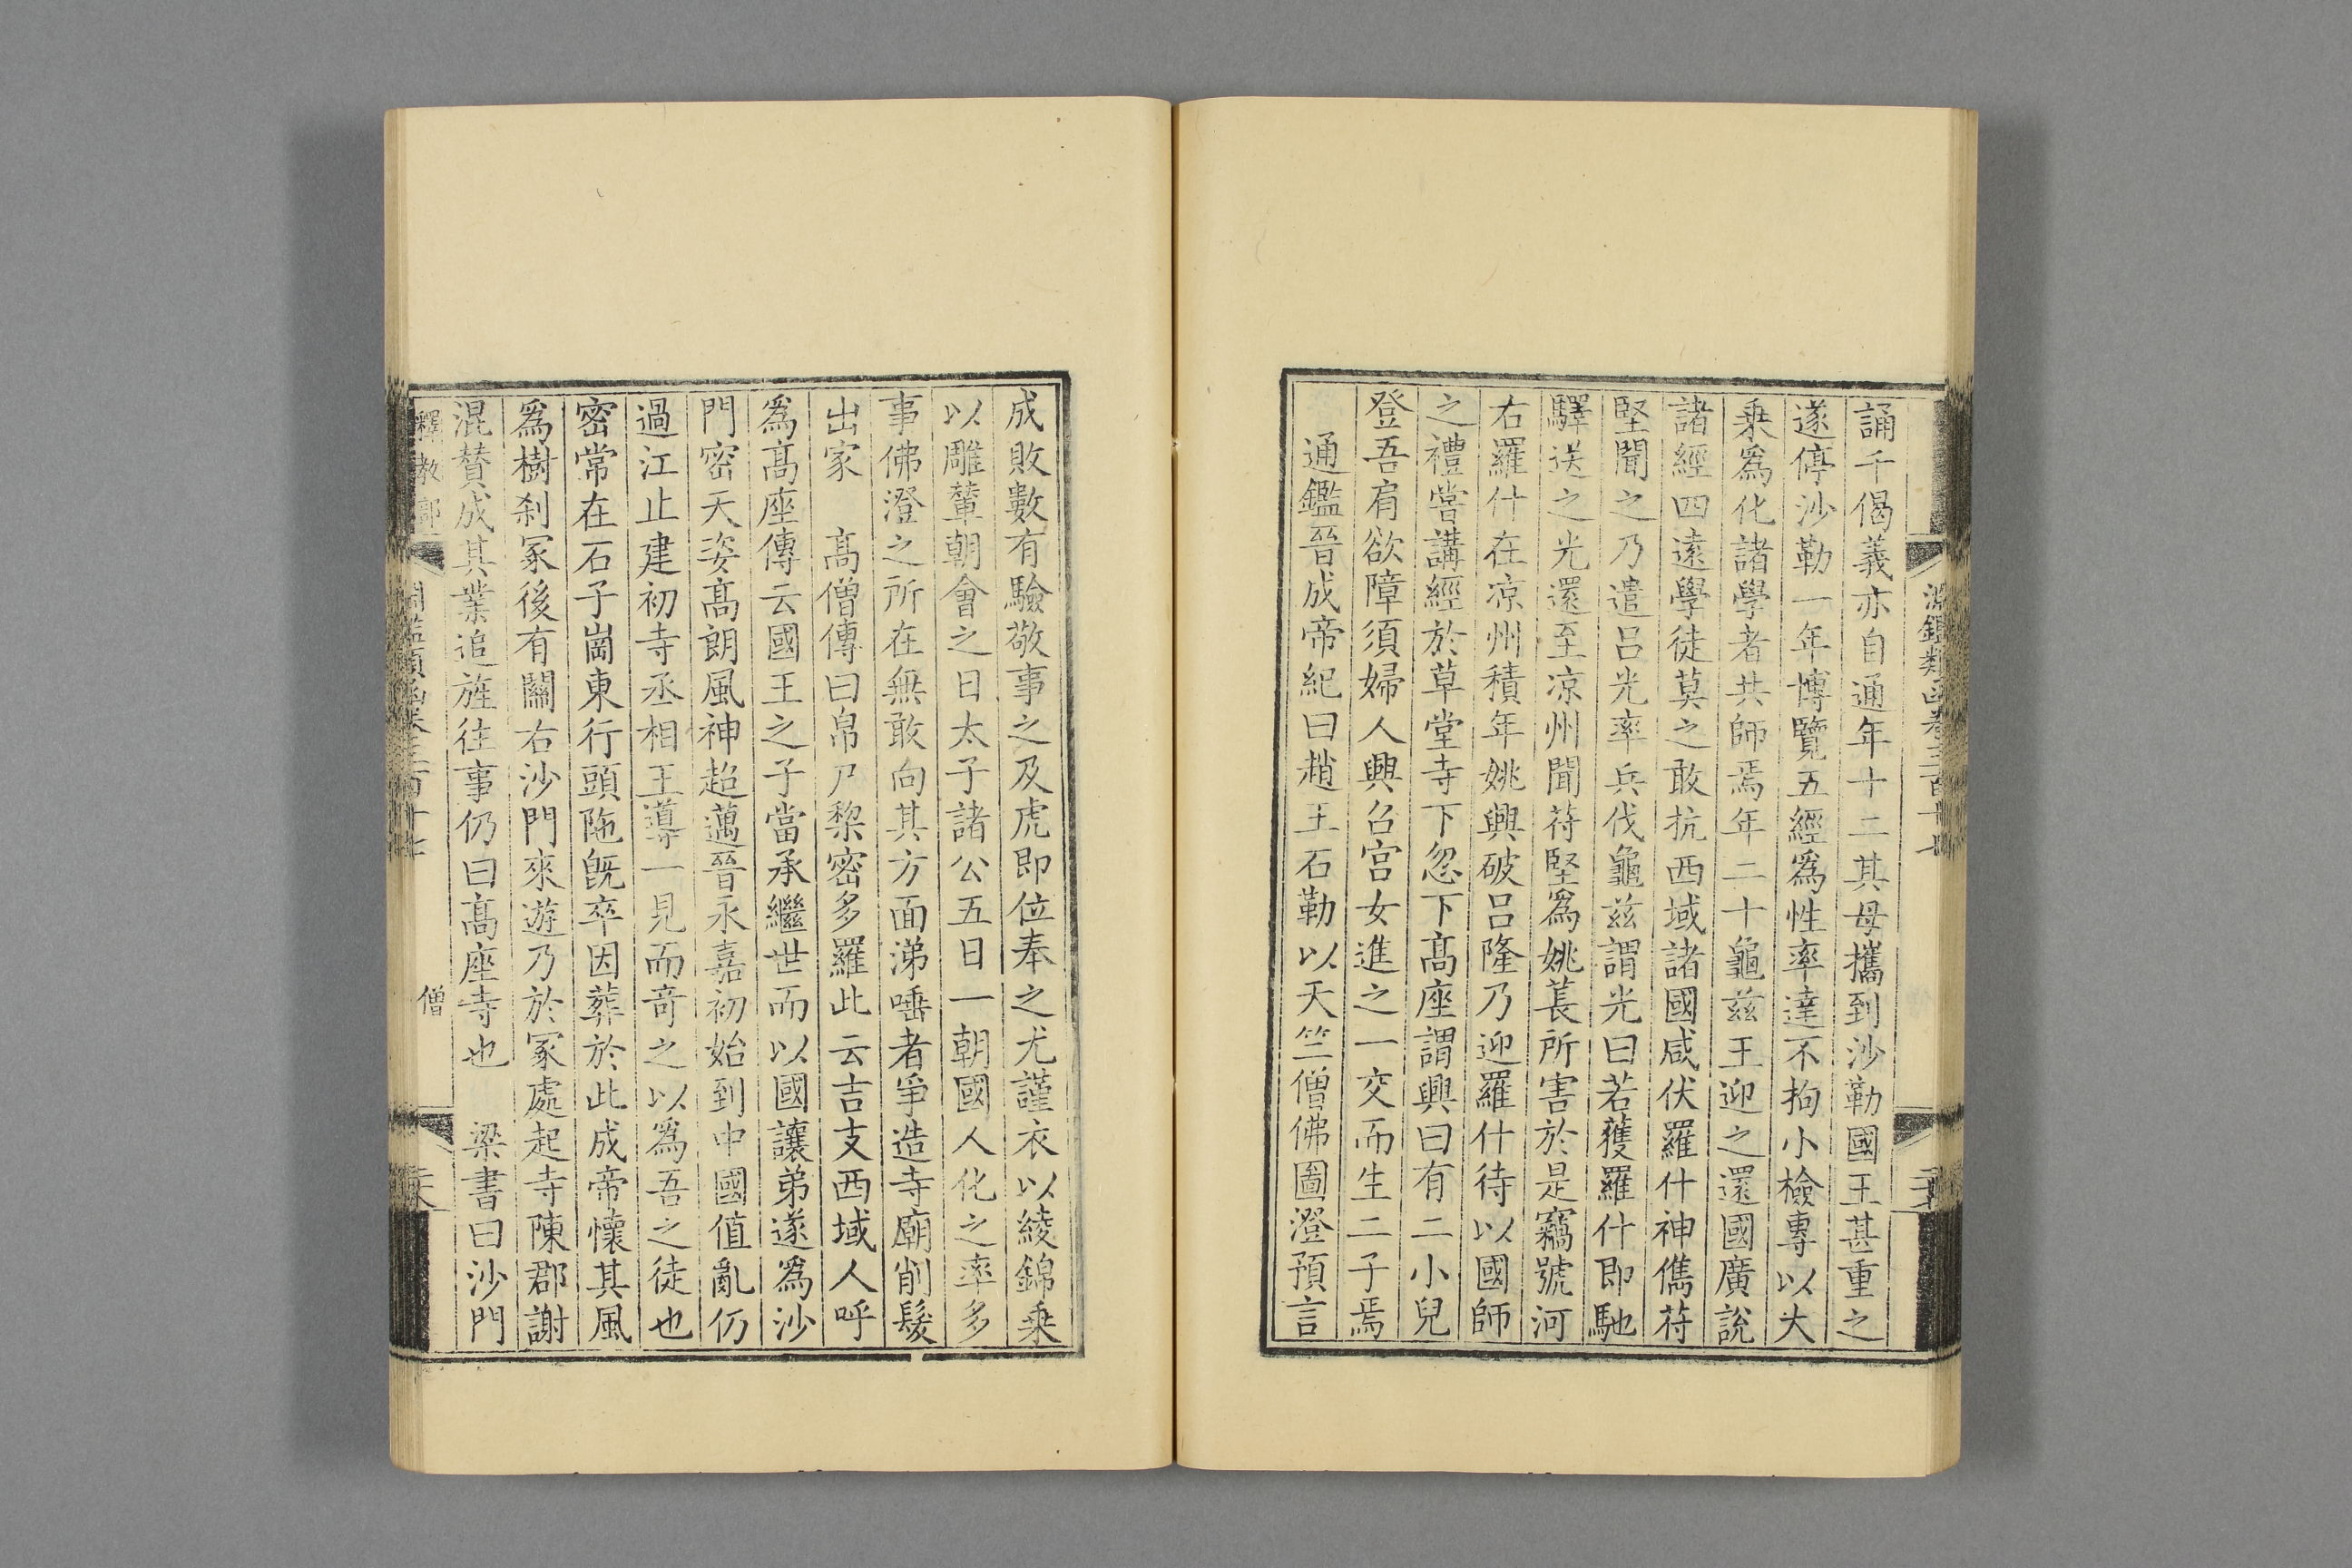 淵鑑類函卷三百十七
誦千偈義亦自通年十二其母攜到沙勒國王甚重之
遂停沙勒一年博覽五經爲性率達不拘小檢專以大
乘爲化諸學者共師焉年二十龜兹王迎之還國廣說
諸經四遠學徒莫之敢抗西域諸國咸伏羅什神儁苻
堅聞之乃遣呂光率兵伐龜兹謂光曰若獲羅什即馳
驛送之光還至凉州聞苻堅爲姚萇所害於是竊號河
右羅什在凉州積年姚興破呂隆乃迎羅什待以國師
之禮嘗講經於草堂寺下忽下髙座謂興曰有二小兒
登吾肩欲障須婦人興召宫女進之一交而生二子焉
通鑑晉成帝紀曰趙王石勒以天竺僧佛圖澄預言
成敗數有驗敬事之及虎即位奉之尤謹衣以綾錦乗
以雕輦朝會之日太子諸公五日一朝國人化之率多
事佛澄之所在無敢向其方面涕唾者爭造寺廟削髮
出家　髙僧傳曰帛尸黎密多羅此云吉支西域人呼
爲髙座傳云國王之子當承繼世而以國讓弟遂爲沙
門密天姿髙朗風神超邁晉永嘉初始到中國值亂仍
過江止建初寺丞相王導一見而竒之以爲吾之徒也
密常在石子崗東行頭陁旣卒因葬於此成帝懷其風
爲樹刹冢後有關右沙門來遊乃於冢處起寺陳郡謝
混贊成其業追旌往事仍曰髙座寺也　梁書曰沙門
釋教部　淵鑑類函卷三百十七　僧